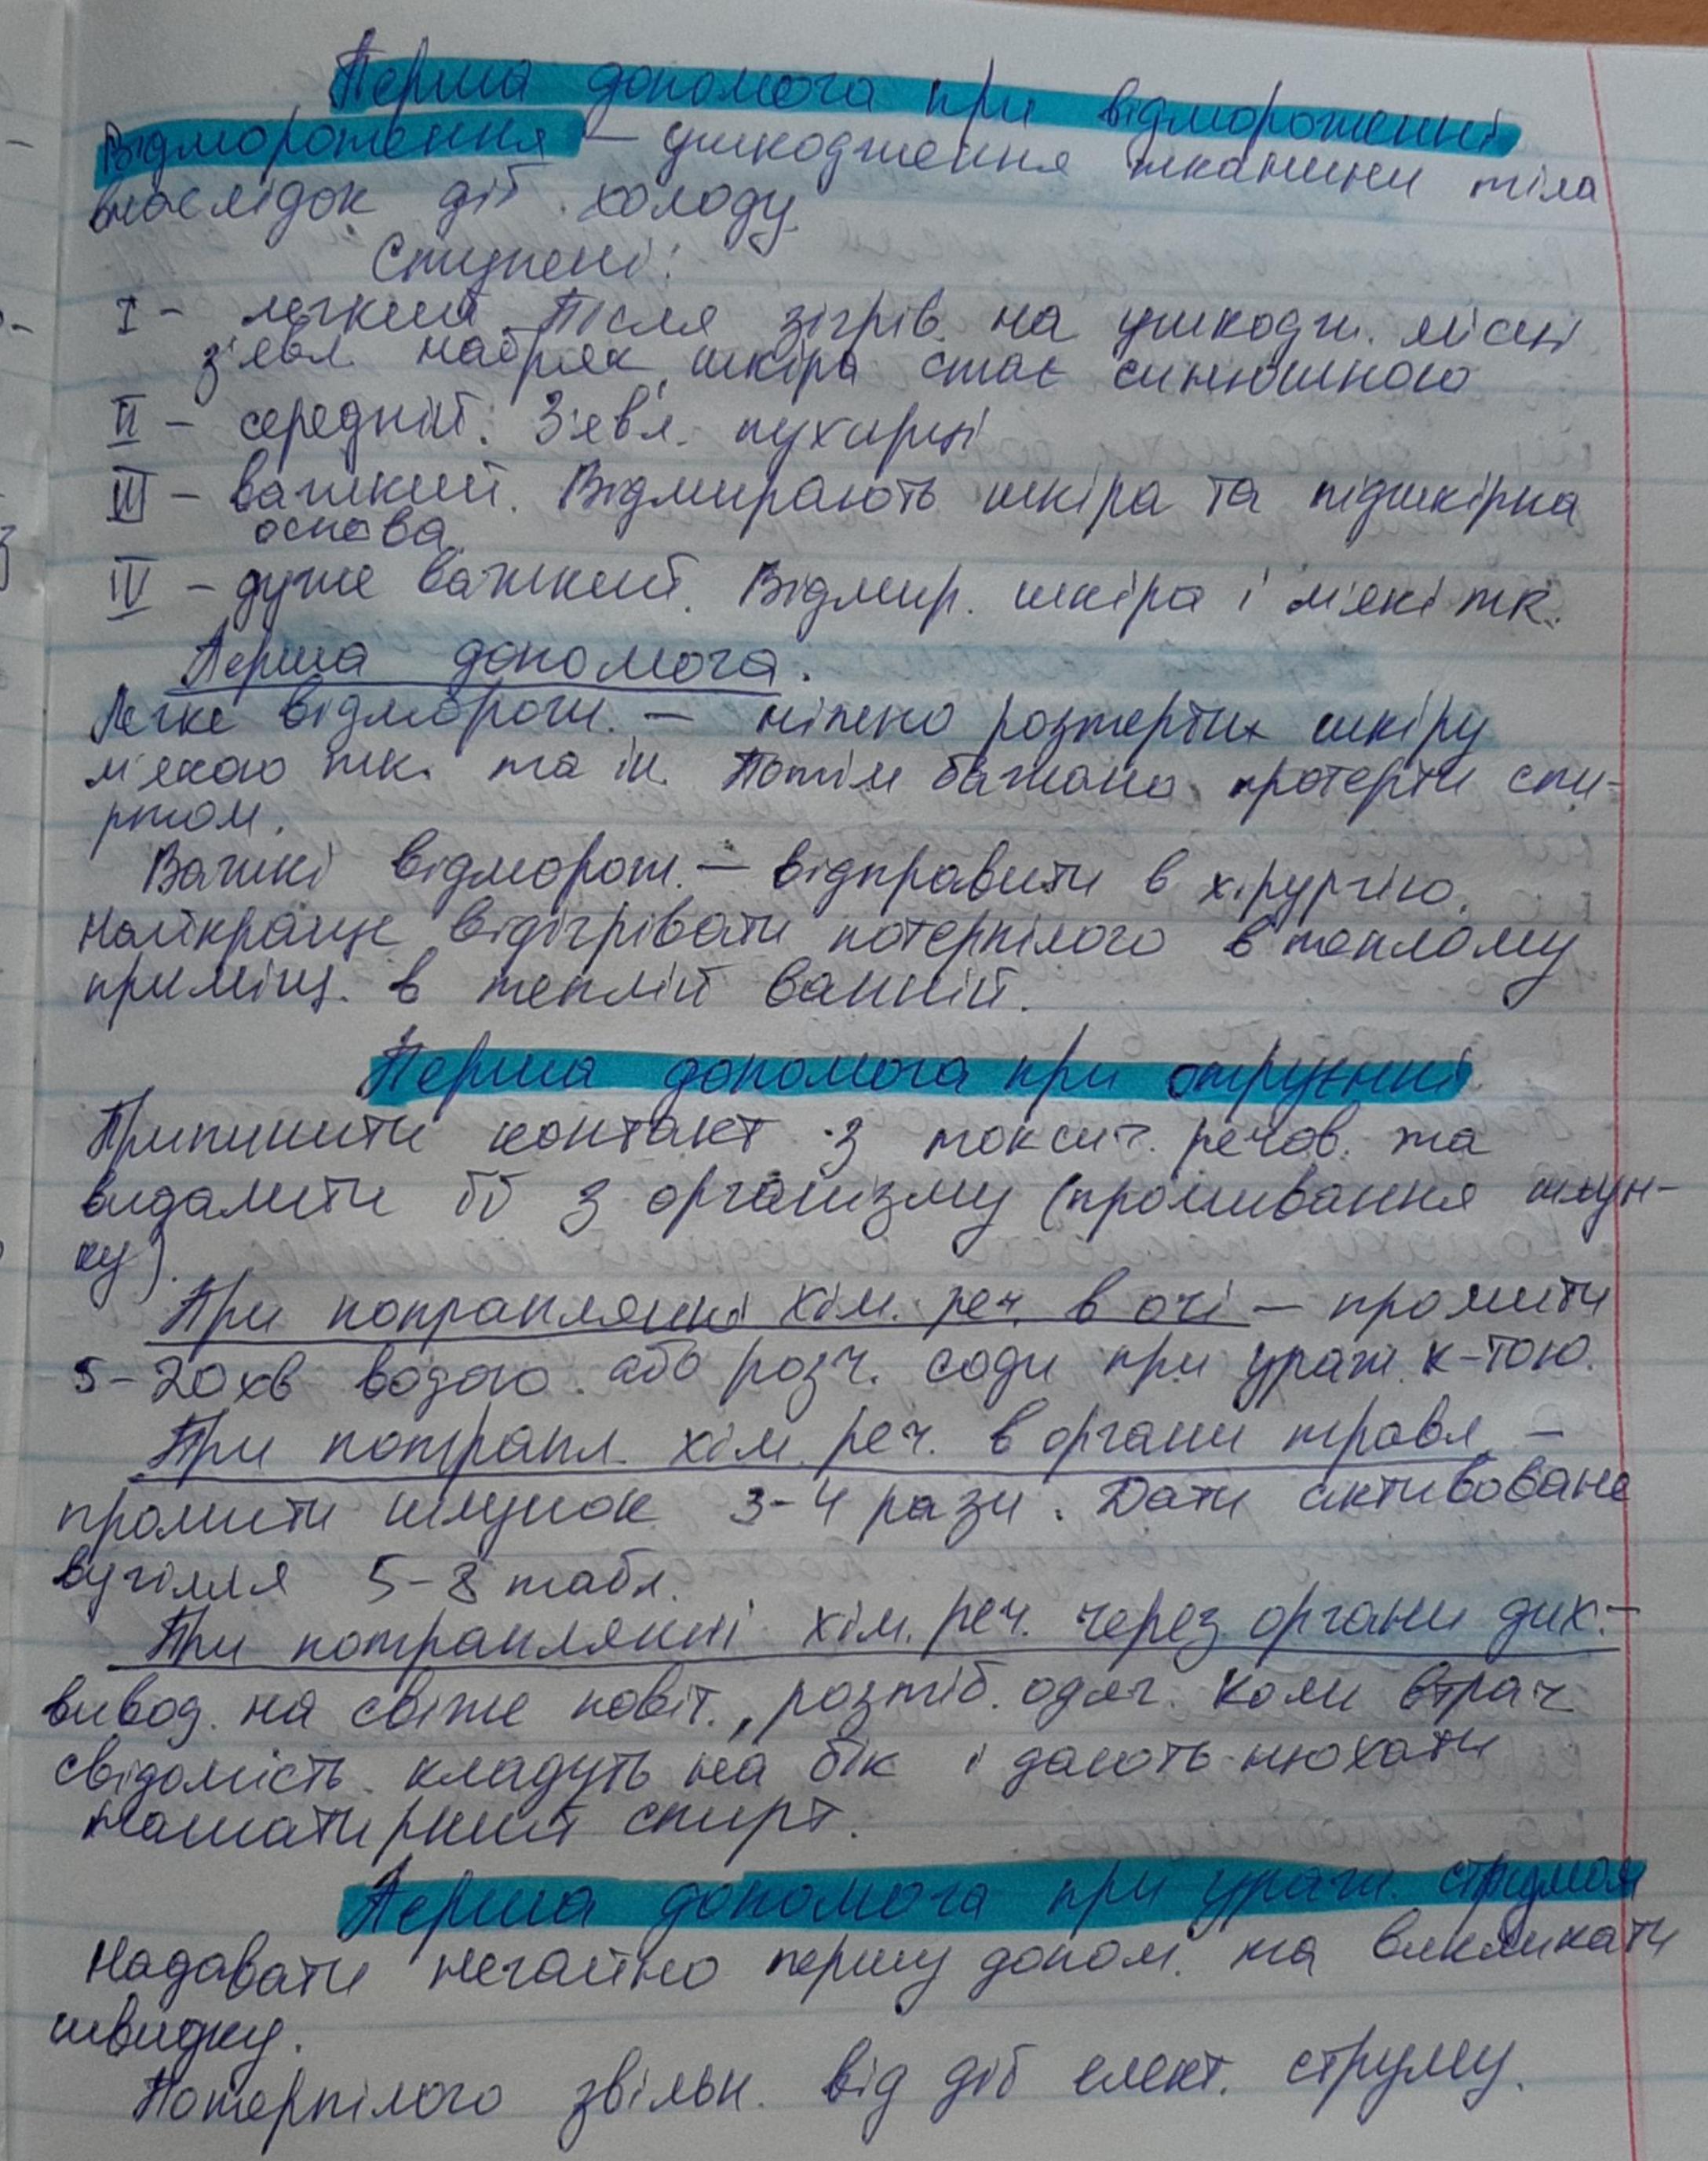 Перша допомога при відмороженні
Відмороження – ушкодження тканини тіла
внаслідок дії холоду.
Ступені:
I – легкий. Після зігрів. на ушкодж. місці
з'явл. набряк, шкіра стає синюшною
II – середній. З'явл. пухирці
III – важкий. Відмирають шкіра та підшкірна
основа.
IV – дуже важкий. Відмир. шкіра і м'які тк.
Перша допомога.
Легке відморож. – розтерти шкіру
м'якою тк. та ін. Потім бажано протерти спи-
ртом.
Важкі відморож. – відправити в хірургію.
Найкраще відігрівати потерпілого в теплому
приміщ. в теплій ванній.
Перша допомога при отруєнні
Припинити контакт з токсич. речов. та
видалити її з організму (промивання шлун-
ку).
При попраплянні хім. реч. в очі – промити
5–20хв водою або розч. соди при ураж. к-тою.
При потрапл. хім. реч. в органи травл. –
промити шлунок 3–4 рази. Дати активоване
вугілля 5–8 табл.
При потраплянні хім. реч. через органи дих.–
вивод. на свіже повіт., розтіб. одяг. Коли втрач
свідомість кладуть на бік і дають нюхати
нашатирний спирт.
Перша допомога при ураж. струмом
Надавати негайно першу допом. та викликати
швидку.
Потерпілого звільн. від дії елект. струму.